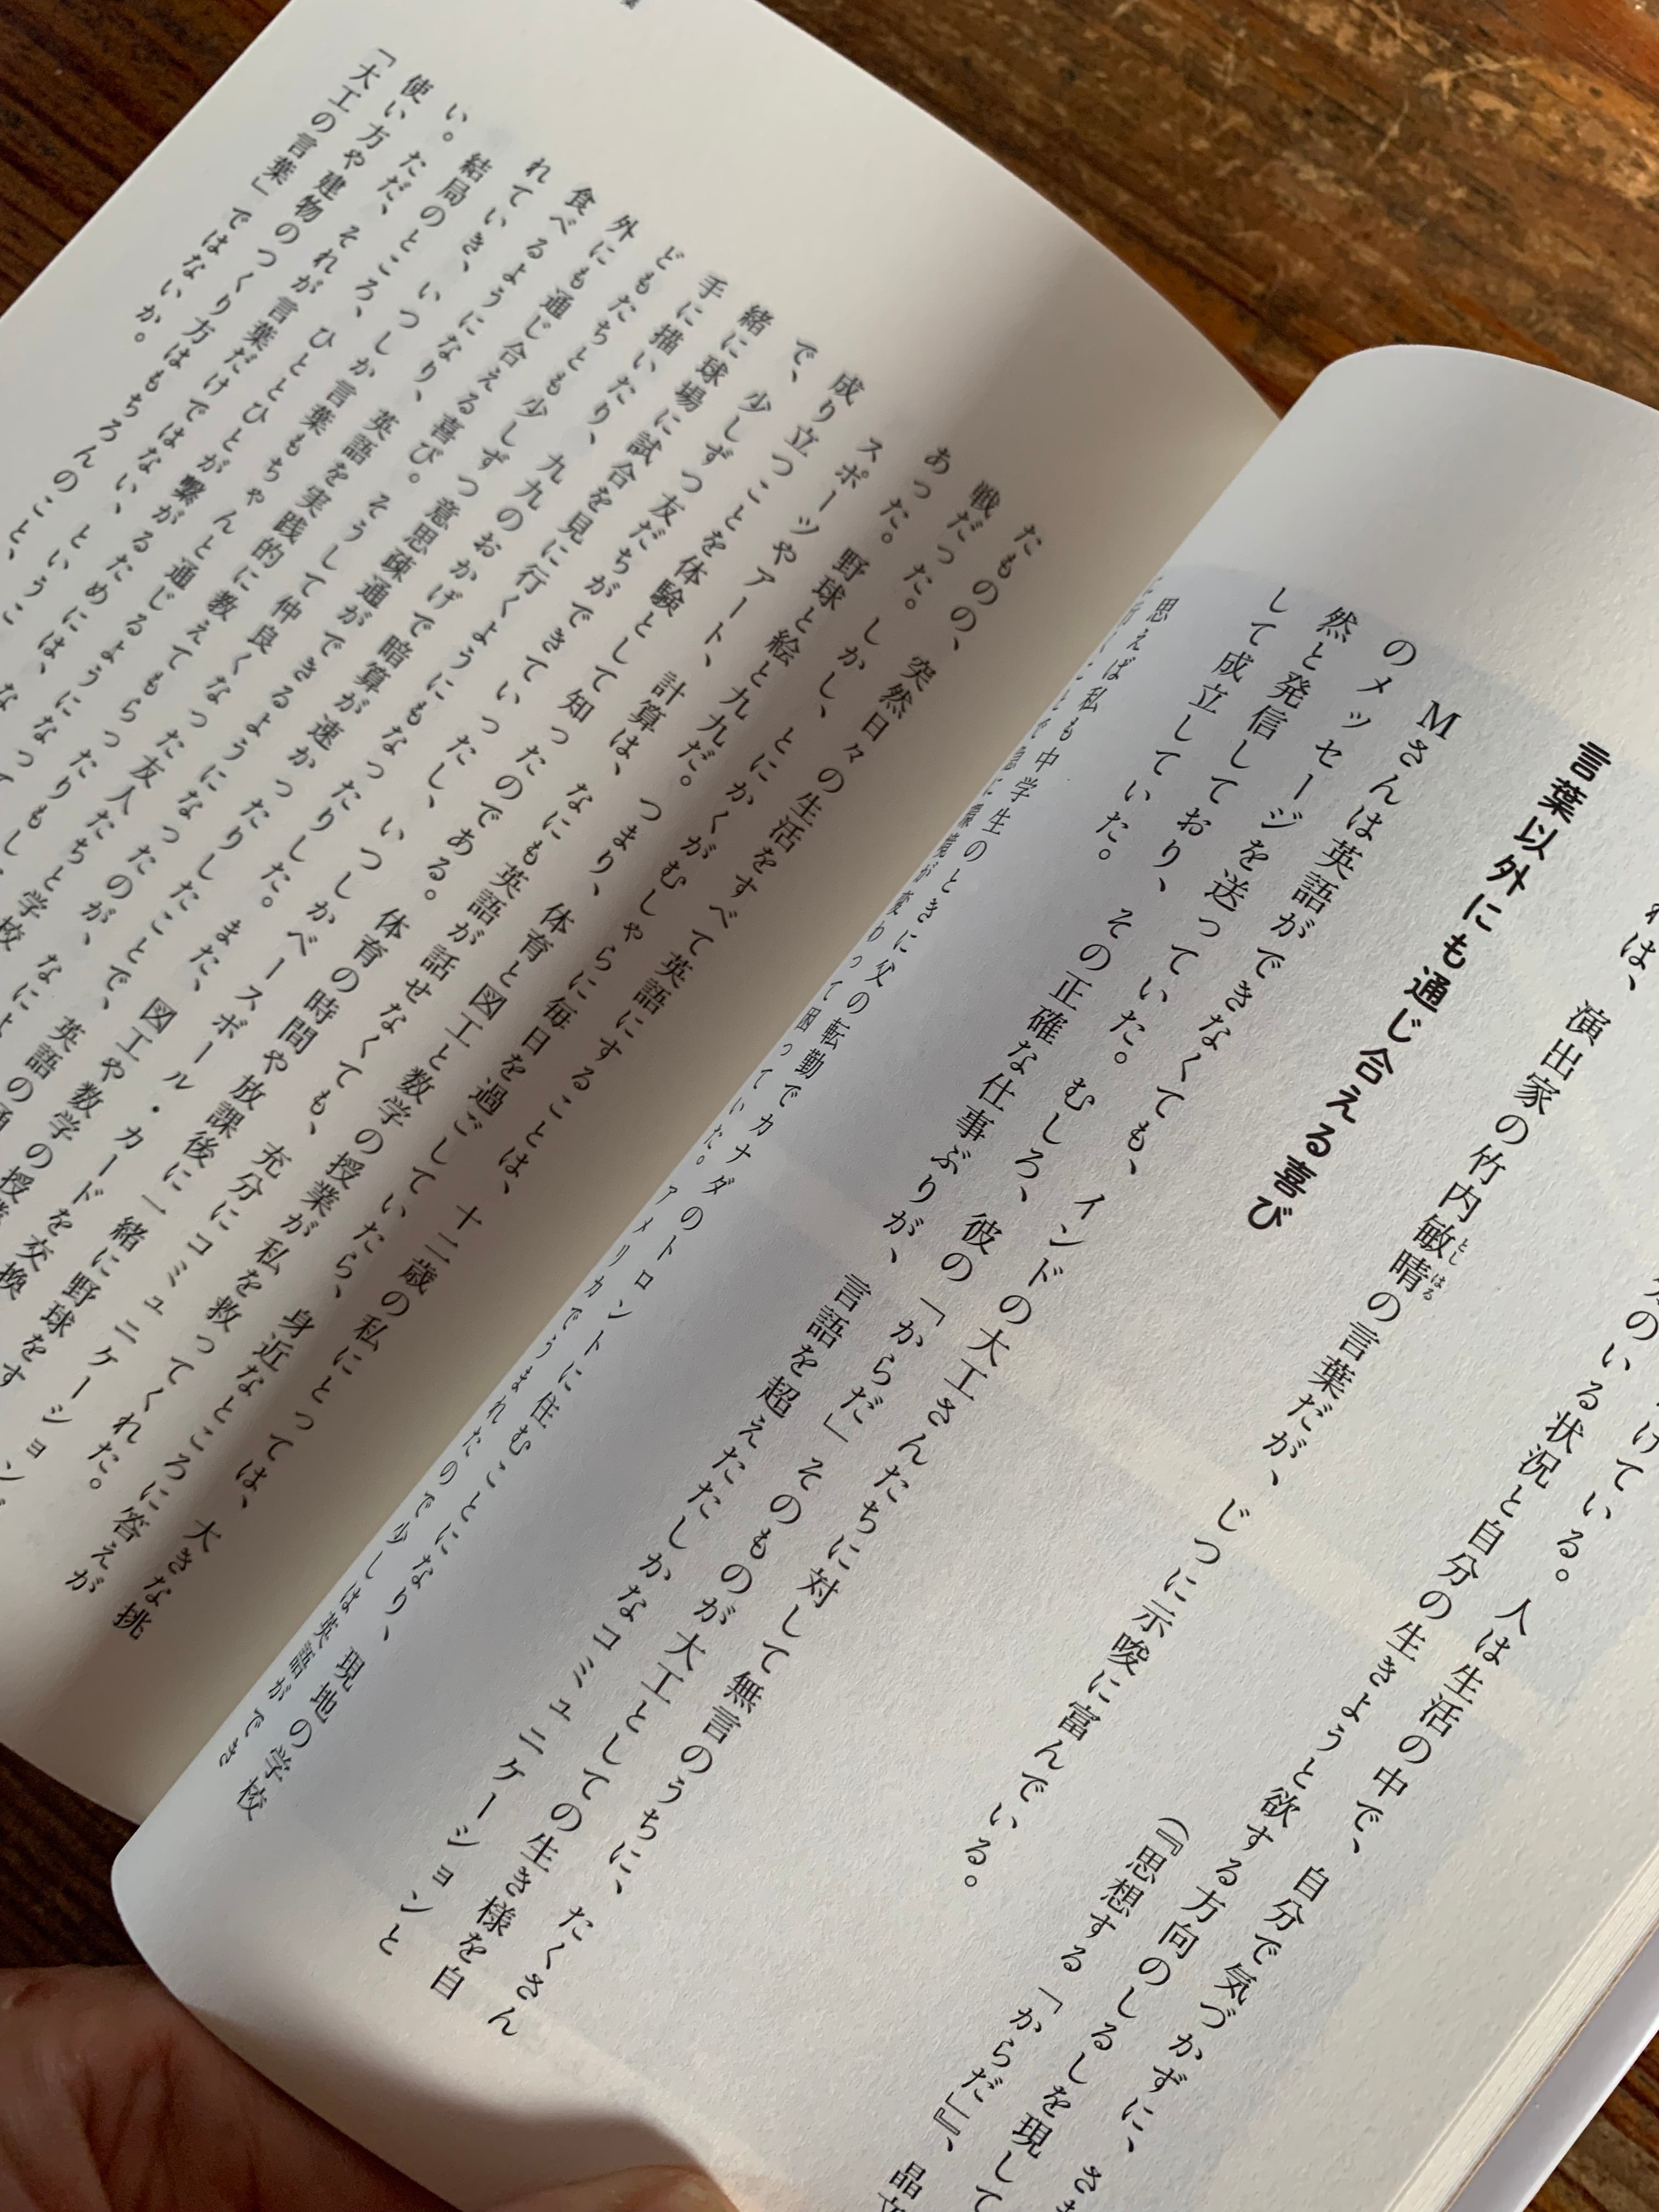 けている。人は生活の中で、自分で気づかずに、さま
のいる状況と自分の生きようと欲する方向のしるしを現して
(『思想する「からだ」』、晶文
れは、演出家の竹内敏晴の言葉だが、じつに示唆に富んでいる。
としはる
言葉以外にも通じ合える喜び
Mさんは英語ができなくても、インドの大工さんたちに対して無言のうちに、たくさん
のメッセージを送っていた。むしろ、彼の「からだ」そのものが大工としての生き様を自
然と発信しており、その正確な仕事ぶりが、言語を超えたたしかなコミュニケーションと
して成立していた。
思えば私も中学生のときに父の転勤でカナダのトロントに住むことになり、現地の学校
環境が変わって困っていた。アメリカでうまれたので少しは英語ができ
たものの、突然日々の生活をすべて英語にすることは、十二歳の私にとっては、大きな挑
戦だった。しかし、とにかくがむしゃらに毎日を過ごしていたら、身近なところに答えが
あった。野球と絵と九九だ。つまり、体育と図工と数学の授業が私を救ってくれた。
スポーツやアート、計算は、なにも英語が話せなくても、充分にコミュニケーションが
成り立つことを体験として知ったのである。体育の時間や放課後に一緒に野球をす
で、少しずつ友だちができていったし、いつしかベースボール・カードを交換
緒に球場に試合を見に行くようにもなったりした。また、図工や数学の授業
手に描いたり、九九のおかげで暗算が速かったりしたことで、英語の通
どもたちとも少しずつ意思疎通ができるようになったのが、なによ
外にも通じ合える喜び。そうして仲良くなった友人たちと学校
食べるようになり、英語を実践的に教えてもらったりもし
れていき、いつしか言葉もちゃんと通じるようになって
結局のところ、ひととひとが繋がるためには、な
い。ただ、それが言葉だけではない、というこ
使い方や建物のつくり方はもちろんのこと、
「大工の言葉」ではないか。